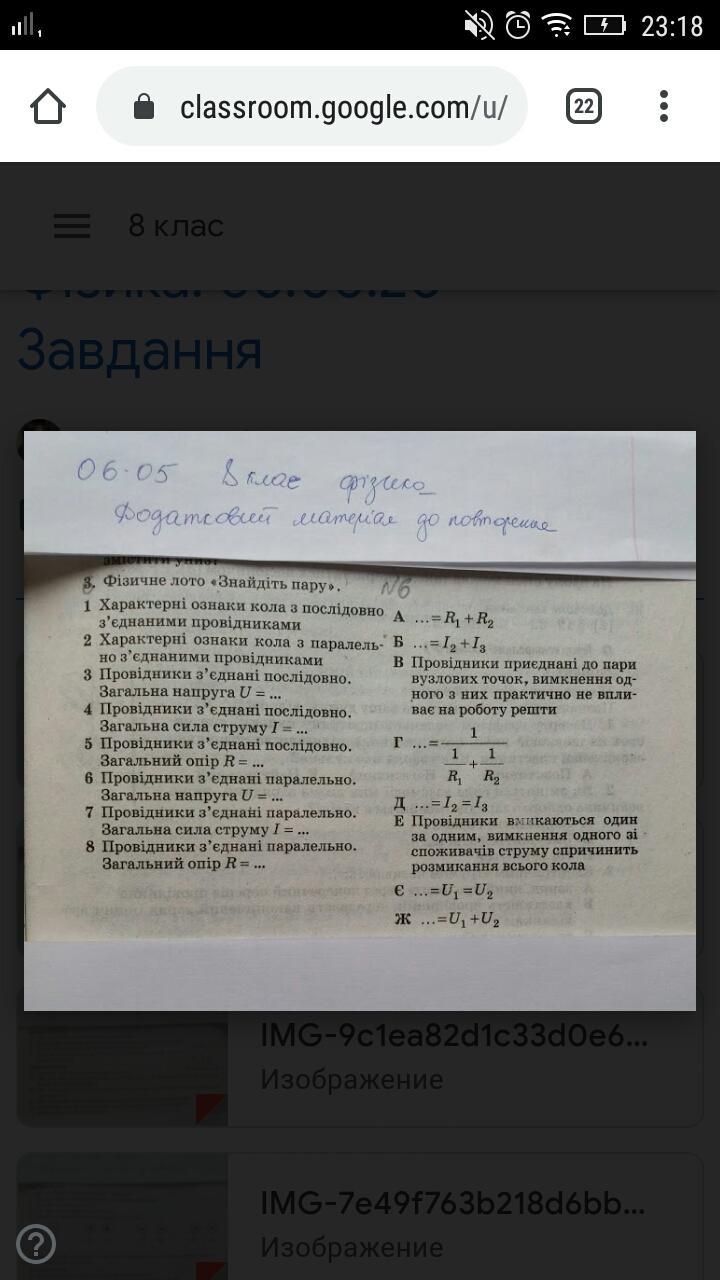 23:18
classroom.google.com/u/
22
8 клас
Завдання
06.05 8 клас фізика
Додатковий матеріал до повторення
змістити униз?
3. Фізичне лото «Знайдіть пару». №6
1 Характерні ознаки кола з послідовно
з’єднаними провідниками
2 Характерні ознаки кола з паралель-
но з’єднаними провідниками
3 Провідники з’єднані послідовно.
Загальна напруга U = ...
4 Провідники з’єднані послідовно.
Загальна сила струму I = ...
5 Провідники з’єднані послідовно.
Загальний опір R = ...
6 Провідники з’єднані паралельно.
Загальна напруга U = ...
7 Провідники з’єднані паралельно.
Загальна сила струму I = ...
8 Провідники з’єднані паралельно.
Загальний опір R = ...
А ...=R₁+R₂
Б ...=I₂+I₃
В Провідники приєднані до пари
вузлових точок, вимкнення од-
ного з них практично не впли-
ває на роботу решти
Г ...= 1 / (1/R₁ + 1/R₂)
Д ...=I₂=I₃
Е Провідники вмикаються один
за одним, вимкнення одного зі
споживачів струму спричинить
розмикання всього кола
Є ...=U₁=U₂
Ж ...=U₁+U₂
IMG-9c1ea82d1c33d0e6...
Изображение
IMG-7e49f763b218d6bb...
Изображение
?